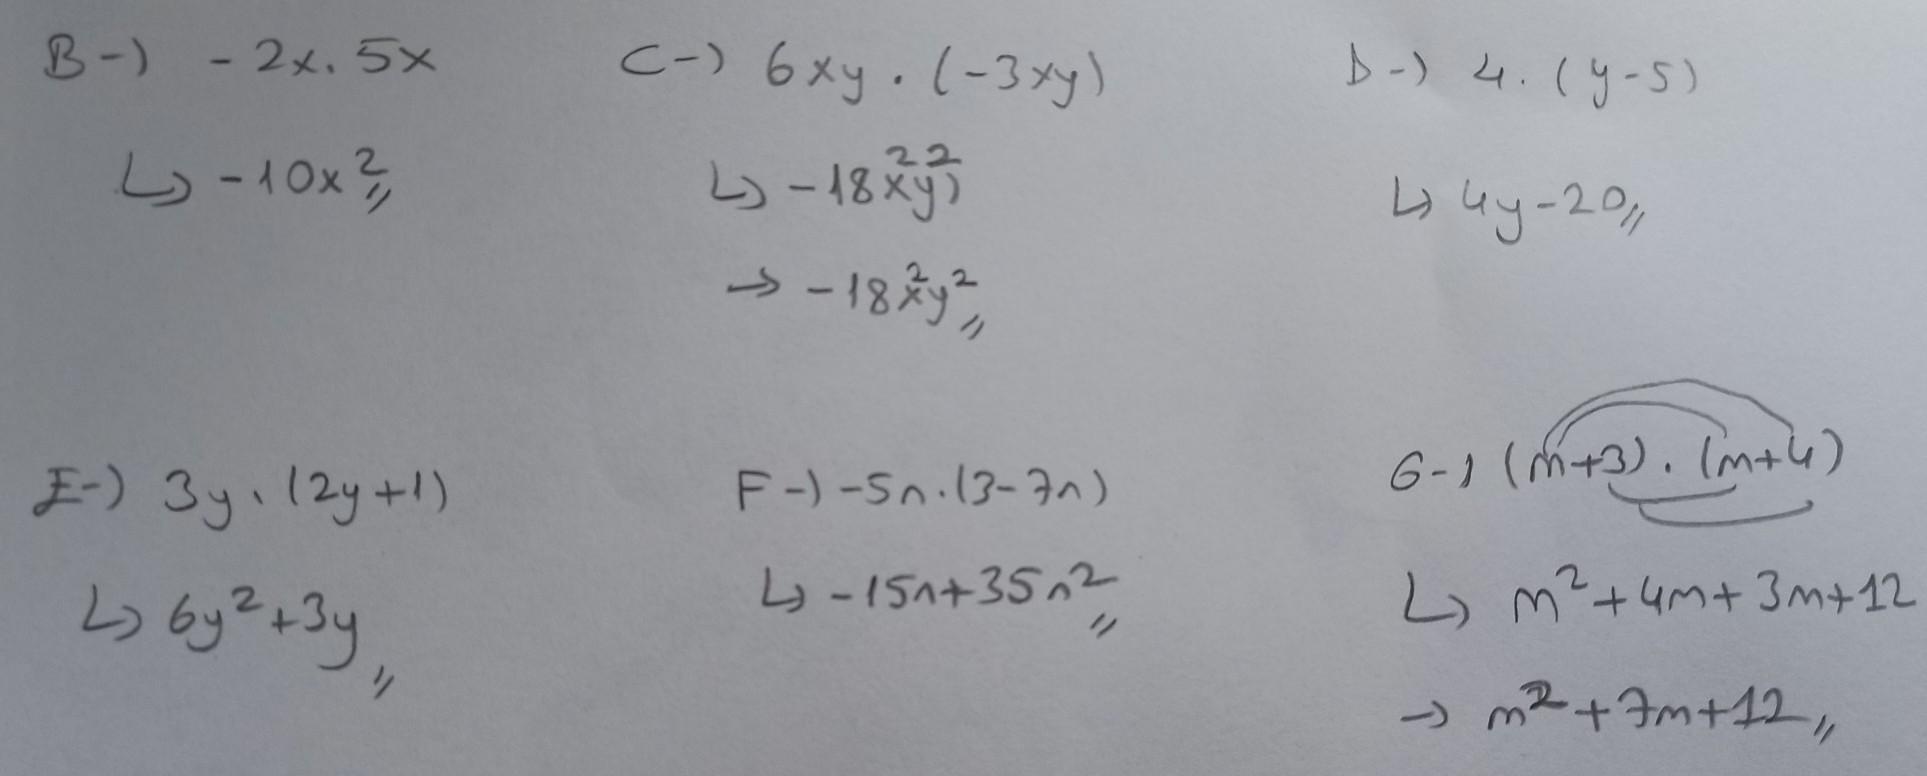 B-) -2x.5x
↳ -10x²〃
C-) 6xy.(-3xy)
↳ -18x²y²)
→ -18x²y²〃
D-) 4.(y-5)
↳ 4y-20〃
E-) 3y.(2y+1)
↳ 6y²+3y〃
F-) -5n.(3-7n)
↳ -15n+35n²〃
G-) (m+3).(m+4)
↳ m²+4m+3m+12
→ m²+7m+12〃